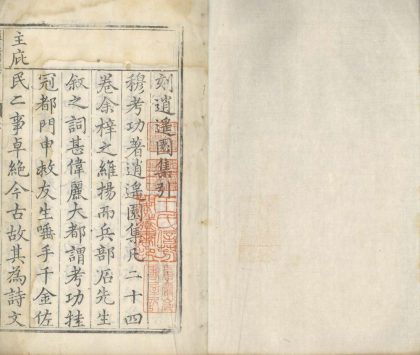 刻逍遙園集引
穆考功著逍遙園集凡二十四
卷余梓之維揚而兵部先生
叙之詞甚偉麗大都謂考功挂
冠都門申救友生唾手千金佐
主庇民二事卓絕今古故其為詩文